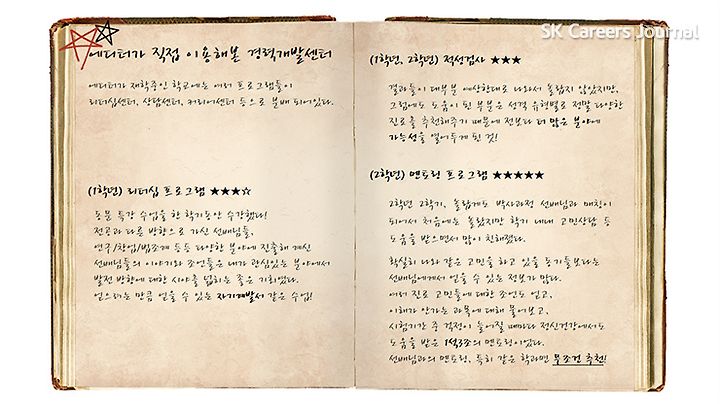 SK Careers Journal
에디터가 직접 이용해본 경력개발센터
에디터가 재학중인 학교에는 여러 프로그램들이
리더십센터, 상담센터, 커리어센터 등으로 분배 되어있다.
(1학년) 리더십 프로그램 ★★★☆
동문 특강 수업을 한 학기동안 수강했다!
전공과 다른 방향으로 가신 선배님들,
연구/창업/법조계 등등 다양한 분야에 진출해 계신
선배님들의 이야기와 조언들은 내가 관심있는 분야에서
발전 방향에 대한 시야를 넓히는 좋은 기회였다.
얻으려는 만큼 얻을 수 있는 자기계발서 같은 수업!
(1학년, 2학년) 적성검사 ★★★
결과들이 대부분 예상한대로 나와서 놀랍지 않았지만,
그럼에도 도움이 된 부분은 성격 유형별로 정말 다양한
진로를 추천해주기 때문에 전보다 더 많은 분야에
가능성을 열어두게 된 것!
(2학년) 멘토링 프로그램 ★★★★★
2학년 2학기, 놀랍게도 박사과정 선배님과 매칭이
되어서 처음에는 놀랐지만 학기 내내 고민상담 등
도움을 받으면서 많이 친해졌다.
확실히 나와 같은 고민을 하고 있을 동기들보다는
선배님에게서 얻을 수 있는 정보가 많다.
여러 진로 고민들에 대한 조언도 얻고,
이해가 안가는 과목에 대해 물어보고,
시험기간 중 걱정이 들어질 때마다 정신건강에서도
도움을 받은 1석3조의 멘토링이었다.
선배님과의 멘토링, 특히 같은 학과면 무조건 추천!